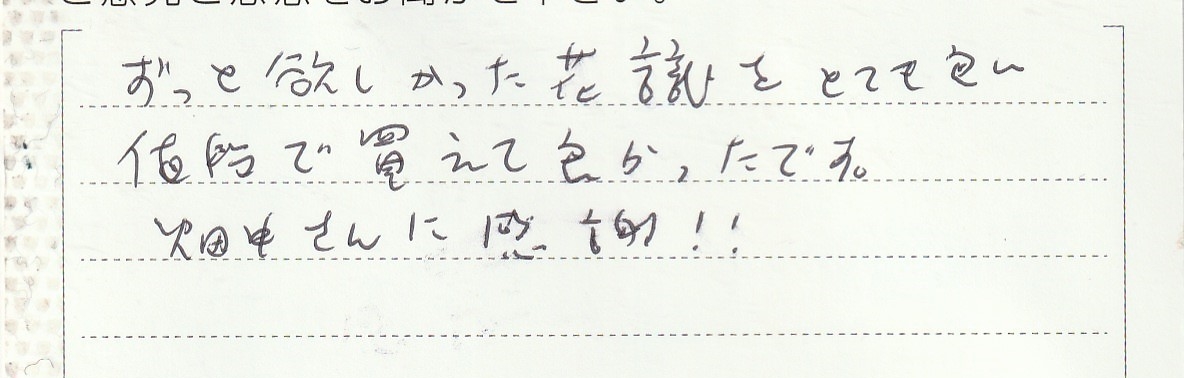 ずっと欲しかった花をとても良い
値段で買えて良かったです。
畑中さんに感謝!!